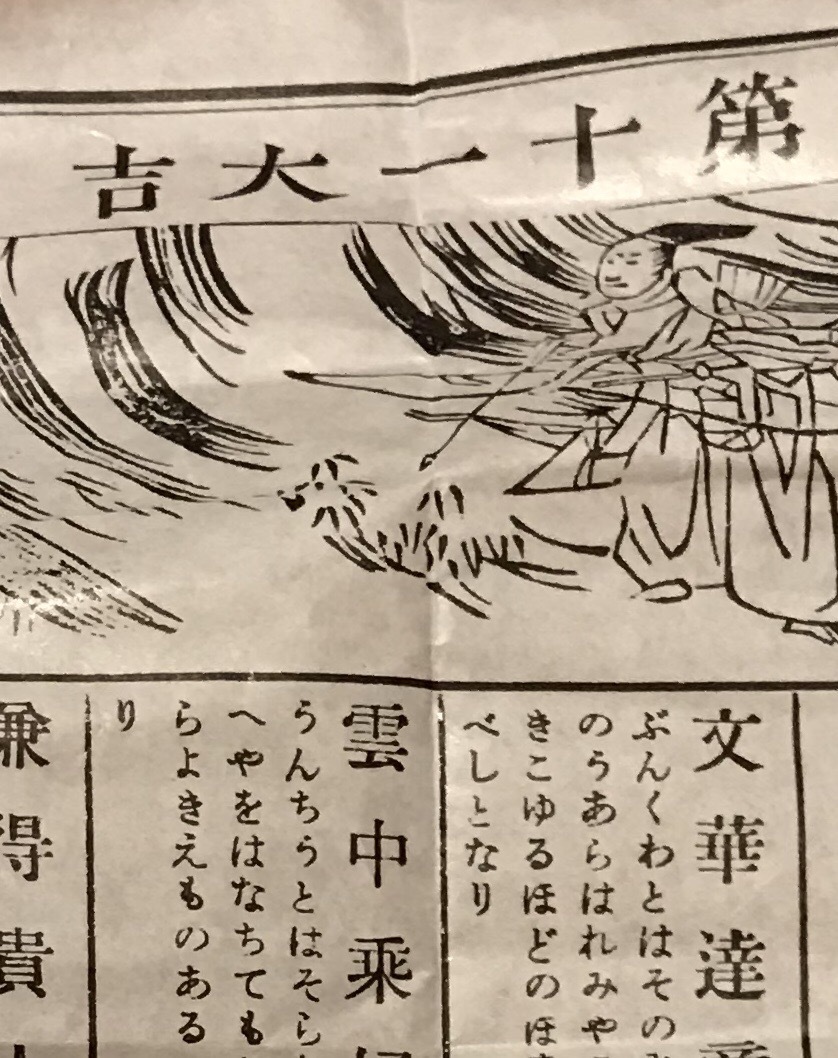 第十一大吉
文華達
ぶんくわとはその
のうあらはれみや
きこゆるほどのほ
べしとなり
雲中乗
うんちうとはそら
へやをはなちても
らよきえものある
り
兼得貴